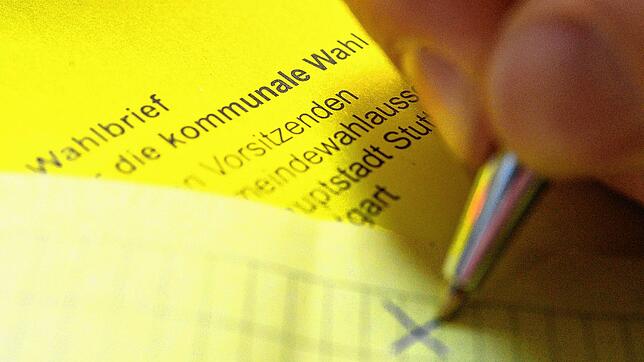 Wahlbrief
die kommunale Wahl
n Vorsitzenden
meindewahlaussc
auptstadt Stut
gart